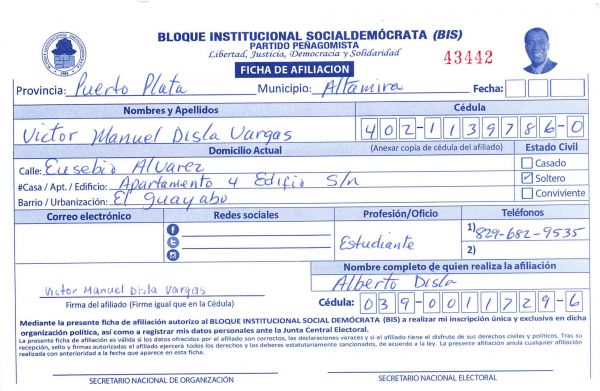 BLOQUE INSTITUCIONAL SOCIALDEMÓCRATA (BIS)
PARTIDO PEÑAGOMISTA
Libertad, Justicia, Democracia y Solidaridad
43442
FICHA DE AFILIACION
Provincia: Puerto Plata Municipio: Altamira Fecha:
Nombres y Apellidos Cédula
Victor Manuel Disla Vargas 402-1139786-0
Domicilio Actual (Anexar copia de cédula del afiliado) Estado Civil
Calle: Eusebio Alvarez Casado
#Casa / Apt. / Edificio: Apartamento 4 Edifio S/n Soltero
Barrio / Urbanización: El guayabo Conviviente
Correo electrónico Redes sociales Profesión/Oficio Teléfonos
1) 829-682-9535
Estudiante 2)
Nombre completo de quien realiza la afiliación
Victor Manuel Disla Vargas Alberto Disla
Firma del afiliado (Firme igual que en la Cédula) Cédula: 039-0011729-6
Mediante la presente ficha de afiliación autorizo al BLOQUE INSTITUCIONAL SOCIAL DEMÓCRATA (BIS) a realizar mi inscripción única y exclusiva en dicha
organización política, así como a registrar mis datos personales ante la Junta Central Electoral.
La presente ficha de afiliación es válida si los datos ofrecidos por el afiliado son correctos, las declaraciones veraces y si el afiliado tiene el disfrute de sus derechos civiles y políticos. Tras su
recepción, sello y firmas autorizadas el afiliado ejercerá todos los derechos y los deberes estatutariamente sancionados, de acuerdo a la ley. La presente afiliación anula cualquier afiliación
realizada con anterioridad a la fecha que aparece en esta ficha.
SECRETARIO NACIONAL DE ORGANIZACIÓN SECRETARIO NACIONAL ELECTORAL